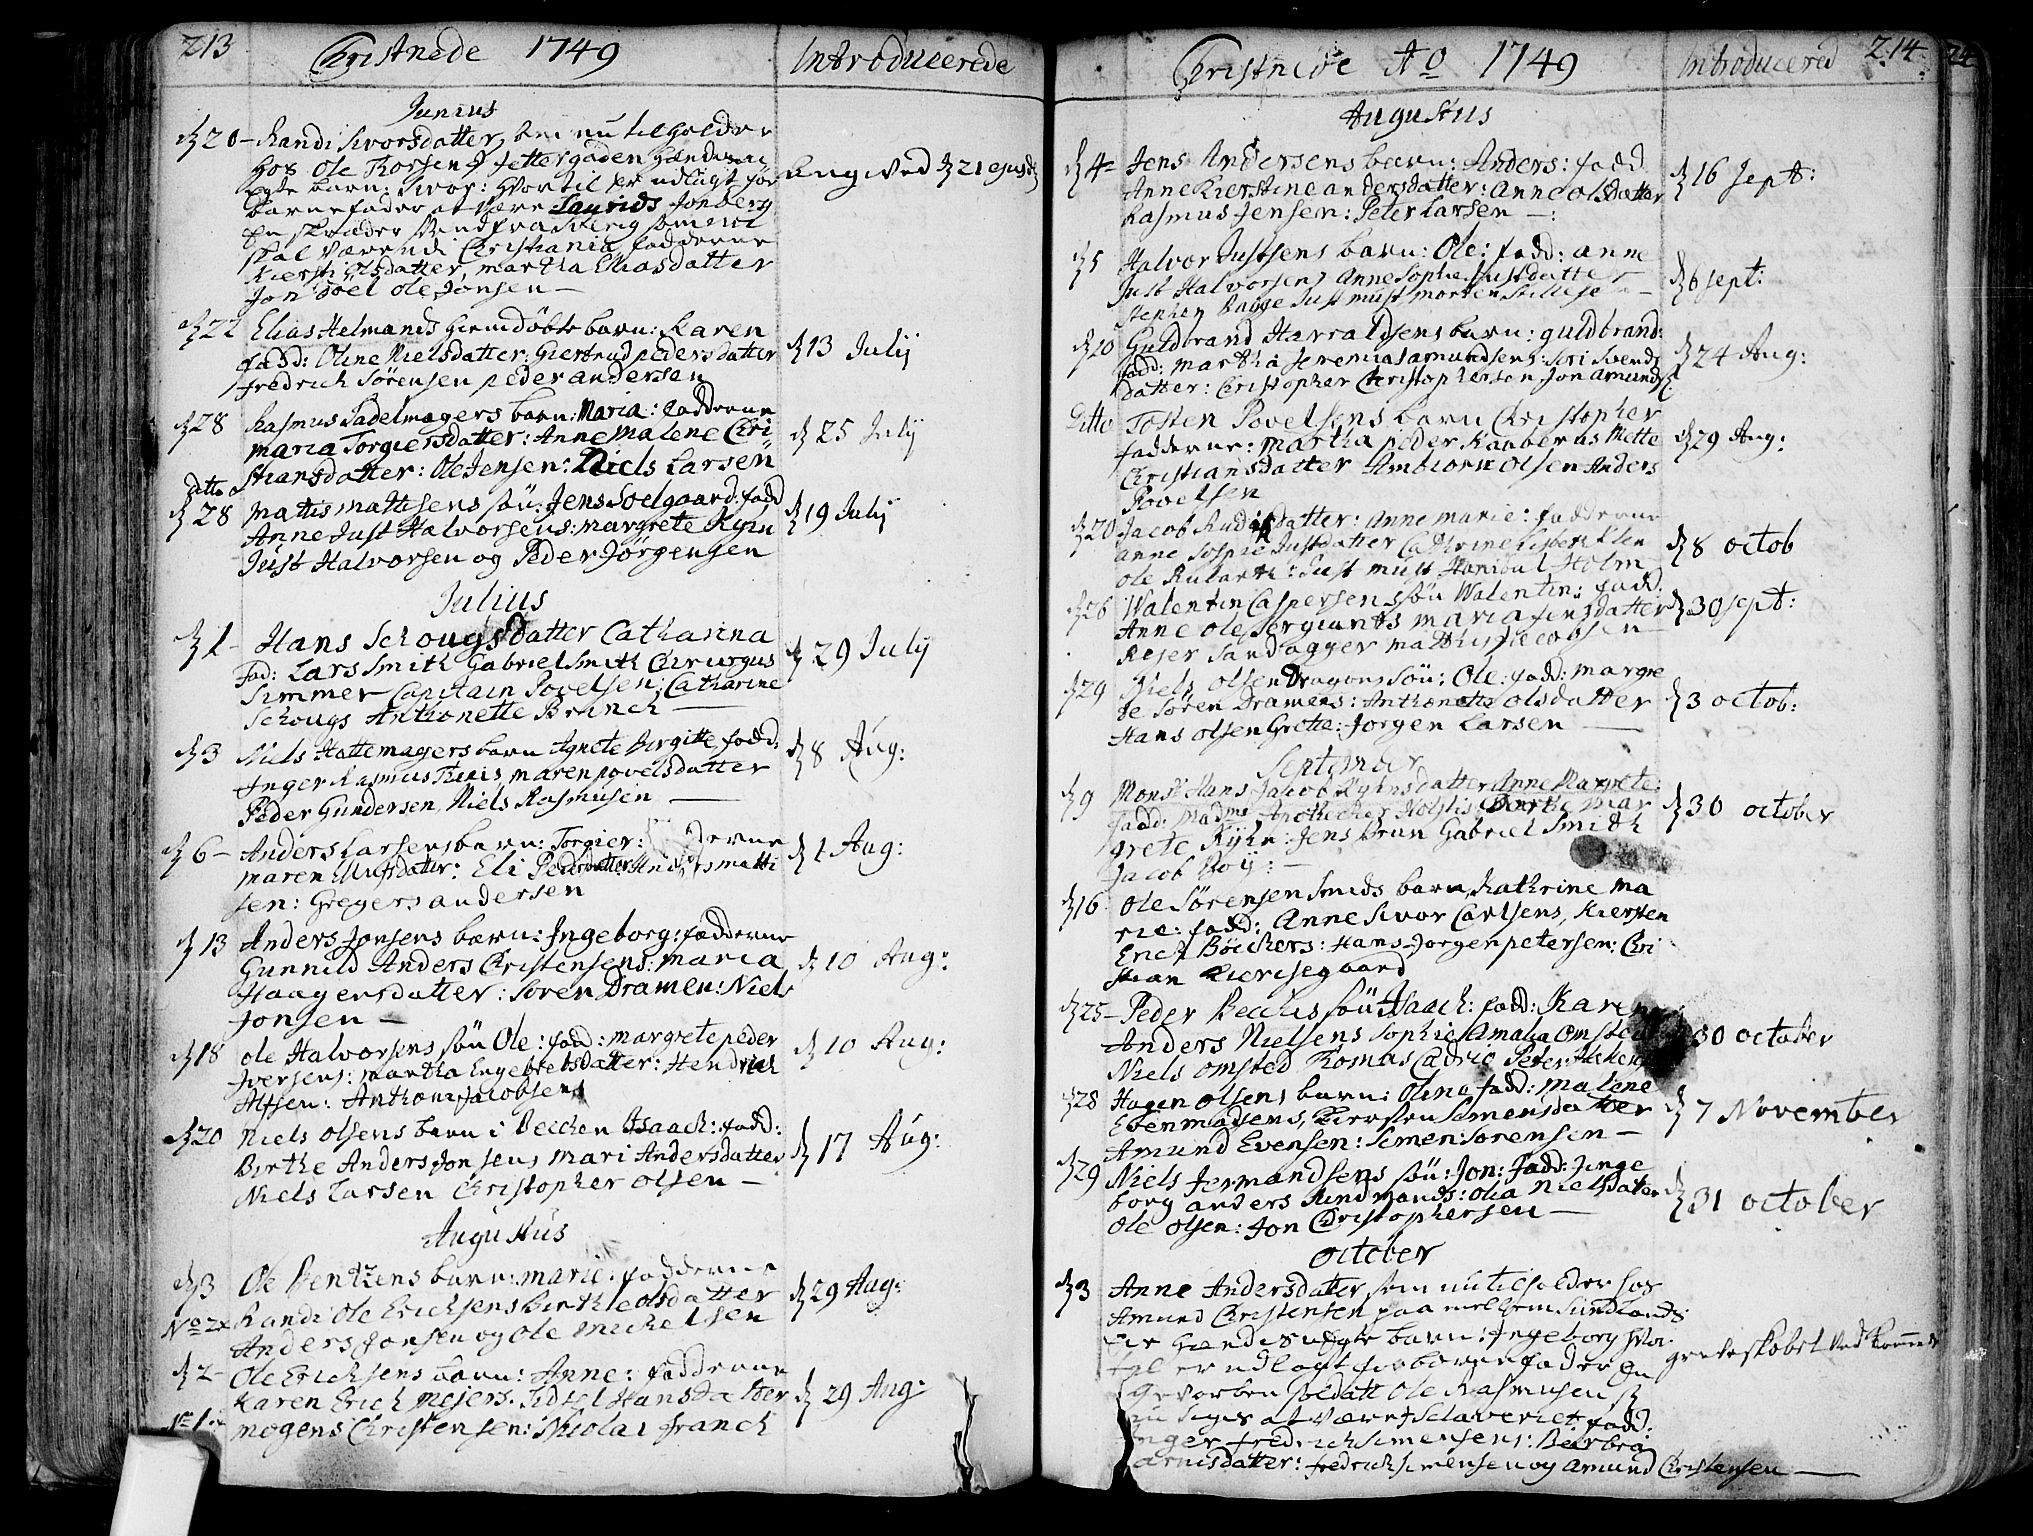 213 Christnede 1749 Introducerede
Junius
20 Randi Sivorsdatter, som nu tilholder
hos Ole Thorsen i Jettergaden hendes u
egte barn: Sivor: hvortil er udlagt for
barnefader at være Laurids Jonberg
skal være udi Christiania fadderne
Kiersti Olsdatter, martha Eliasdatter
Jon Joel Ole Jonsen —
angived d 21 ejusd
22 Elias Helmands hiemdøbte barn: Karen
fadd: Oline Nielsdatter: Giertrud pedersdatter
fredrich Sørensen peder andersen
d 13 Julij
d 28 Rasmus Sadelmagers barn: Maria: fadderne
maria Torgiersdatter: Anne Malene Chri
stiansdatter: Ole Jensen: Niels Larsen
d 25 Julij
ditto
d 28 Mattis mattisens søn: Jens Soelgaard: fadd
Anne Just Halvorsens: margrete Kyhn
Just Halvorsen og Peder Jørgensen
d 19 Julij
Julius
d 1 - Hans Schougs datter Catharina
fad: Lars Smith Gabriel Smith Chirurgus
Simmer Capitain Povelsen: Catharine
Schougs Anthonette Brinch —
d 29 Julij
d 3 Niels Hattemagers barn Agnete Birgitte fadd:
Inger Rasmus Thiis maren povelsdatter
Peder Gundersen, Niels Rasmusen —
d 8 Aug:
d 6 - Anders Larsens barn: Torgier: derne
maren datter: Eli Pedersdatter Anders matti
sen: Gregers andersen
d 1 Aug:
d 13 Anders Jonsens barn: Ingeborg: fadderne
Gunnild Anders Christensens: maria
Haagensdatter: Søren Dramen: Niels
Jonsen —
d 10 Aug:
d 18 ole Halvorsens søn Ole: fad: margrete peder
Iversens: martha Engebretsdatter: Hendrich
Alfsen: Anthoni Jacobsen
d 10 Aug:
d 20 Niels Olsens barn i Becchen Isaach: fadd:
Birthe Anders Jonsens mari Andersdatter
Niels Larsen Christopher olsen —
d 17 Aug:
Augustus
d 3 Ole Bentzens barn: marie: fadderne
No 2 Randi Ole Erichsens Birthe olsdatter
Anders Jonsen og Ole Michelsen
d 29 Aug:
d 2 - Ole Erichsens barn: Anne: fadderne
Karen Erich Mejers. Sidsel Hansdatter
mogens Christensen: Nicolai franch
d 29 Aug:
Christnede Ao 1749 Introducered 214
Augustus
d 4 Jens Andersens barn: Anders: fadd
Anne Kierstine andersdatter: Anne olsdatter
Rasmus Jensen: Peter Larsen —:
d 16 Sept:
d 5 Halvor Justsens barn: Ole: fadd: anne
Just Halvorsens Anne Sophie Justdatter
Stephen Bugge Just must morten
d 6 sept:
d 10 Guldbrand Harraldsens barn: guldbrand:
fadd: martha Jeremias amundsens: Siri Svends
datter: Christopher Christophersen Jon Amunds
d 24 Aug:
Ditto Tosten Povelsens barn Christopher
fadderne: martha peder Kaaberus Mette
Christiansdatter Ambiorn Olsen Anders
Povelsen
d 29 Aug:
d 20 Jacob datter: Anne marie: fadderne
anne Sophie Justdatter Cathrine
Ole Just must Hanibal Holm
d 8 octob
d 26 Walentin Caspersens søn Walentin: fadd:
Anne Ole Sergiants Maria Jensdatter
Rejer Sandagger matthis Jacobsen
d 30 sept:
d 29 Niels Olsen Dragons søn: Ole: fadd: margre
te Søren Dramens: Anthonette olsdatter
Hans olsen Grette: Jorgen Larsen —
d 3 octob:
September
d 9 Monsr Hans Jacob Kyhns datter Anne Margrete:
fadd: Madme Apothecher Holst: Dorthe Mar
grete Kyhn: Jens Brun Gabriel Smith
Jacob Boij: —
d 30 october
d 16 Ole Sørensen Smids barn, Kathrine Ma
rie: fadd: Anne Sivor Carlsens, Kiersten
Erich Böckers: Hans Jorgen petersen: Chri
stian Kierisegaard
d 25 - Peder Becchs søn Isaach: fadd: Karen
Anders Nielsens Sophie Amalia Omsted
Niels Omsted Thomas Peter
30 october
d 28 Hagen Olsens barn: Oline fadd: Malene
Eben madsens, Kiersten Simensdatter
Amund Evensen: Simen Sorensen —
d 7 November
d 29 Niels Jermandsens søn: Jon: fadd: Inge
borg anders Rundmands: olia Nielsdatter
Ole olsen: Jon Christophersen —
d 31 october
October
d 3 Anne Andersdatter som nu tilholder hos
Amund Christensen paa
hendes uegte barn: Ingeborg hvor
til er udlagt for barnefader En
gevorben soldatt Ole Rasmusen
nu siges at være i Slaveriet: fadd:
Inger fredrich simensens: Barbra
arnisdatter: fredrich simensen og Amund Christensen —